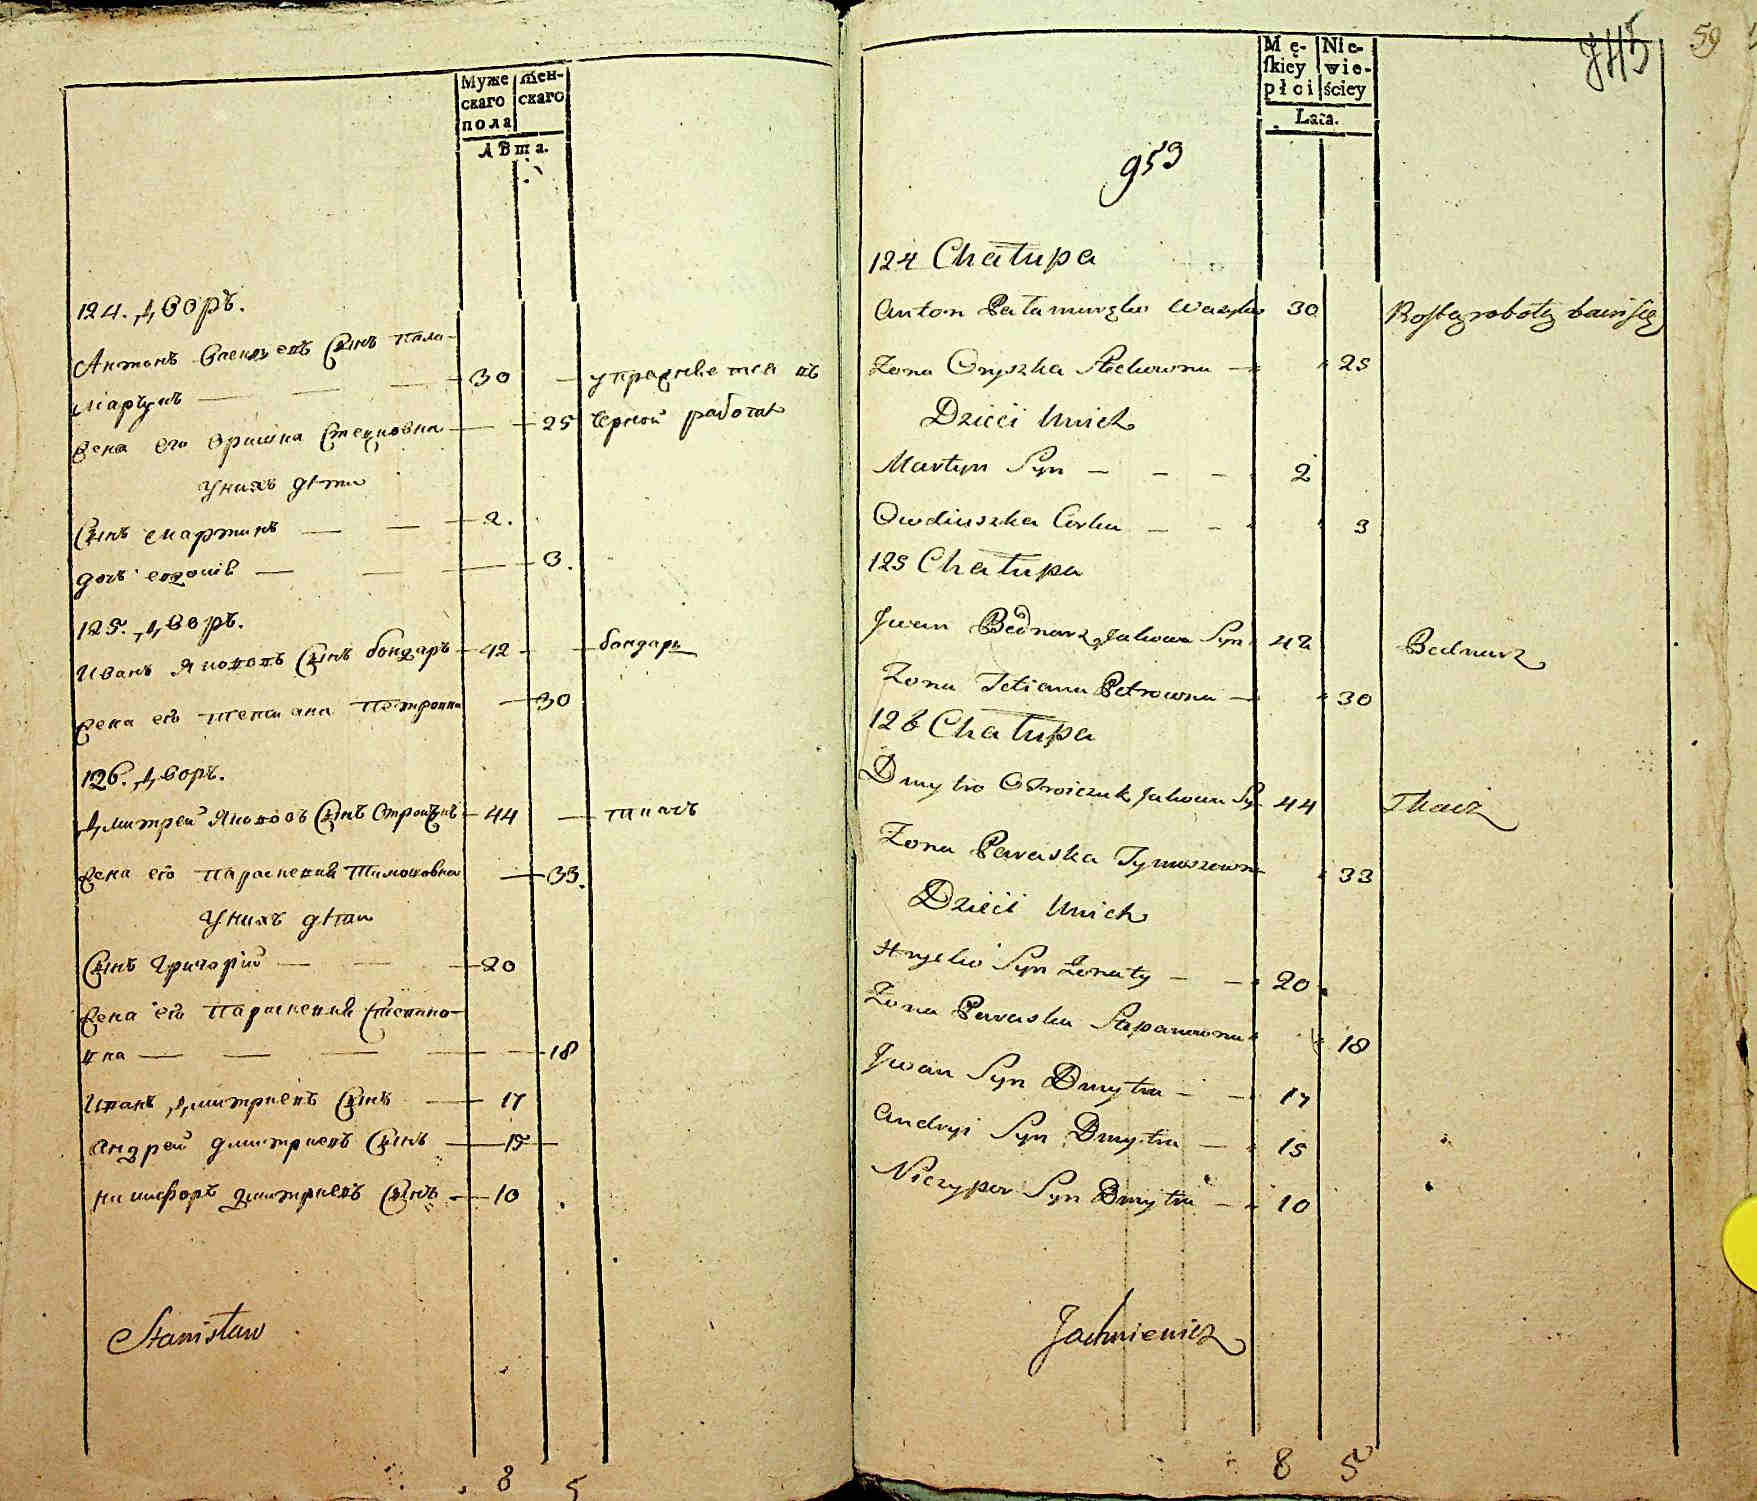 Муже скаго пола
Жен- скаго
Лѣта.
124. Дворъ.
Антонъ Васильевъ Сынъ Пала-
марчукъ — 30 — упражняется въ
Жена его Оришка Стецковна — 25 Черной работѣ
У нихъ дѣти
Сынъ Мартинъ — 2.
дочь Евдокія — 3.
125. Дворъ.
Иванъ Яковлевъ Сынъ бондаръ — 42 — бондарь
Жена его Татиана Петровна — 30
126. Дворъ.
Дмитрей Яковлевъ Сынъ — 44 — ткачъ
Жена его Параскевия Тимошовна — 33.
У нихъ дѣти
Сынъ Григорій — 20
Жена его Параскевия Степано-
вна — 18
Иванъ Дмитриевъ Сынъ — 17
Андрей Дмитриевъ Сынъ — 15
Никифоръ Дмитриевъ Сынъ — 10
Stanisław
8 5
59
Mę- skiey płci
Nie- wie- ściey
Lata.
953
124 Chałupa
Anton Pałamarczuk Wasylow 30
Żona Oryszka Steckowna — 25
Dzieci U nich
Martyn Syn — 2
Owdiuszka Corka — 3
125 Chałupa
Jwan Bednarz Jakowa Syn 42 Bednarz
Żona Tetiana Petrowna — 30
126 Chałupa
Dmytro Ostroiczuk Jakowa Sy 44 Tkacz
Żona Paraska Tymoszowna 33
Dzieci U nich
Hryćko Syn żonaty — 20
Żona Paraska Stepanowna 18
Jwan Syn Dmytra — 17
Andryi Syn Dmytra — 15
Niczypor Syn Dmytra — 10
Jachniewicz
8 5